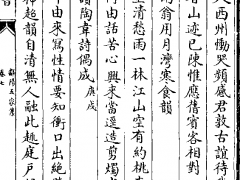 西州慟哭頻感君敦古誼待
山迹已陳惟應舊賓客相對
翁用月灣寒食韻
生清愁雨一林江山空有約桃
由話苦心興來當遥造剪燭
讀陶韋詩偶成庚戌
由來寫性情要知衝口出絶
神超韻自清無人融此趣庭戶
卷七